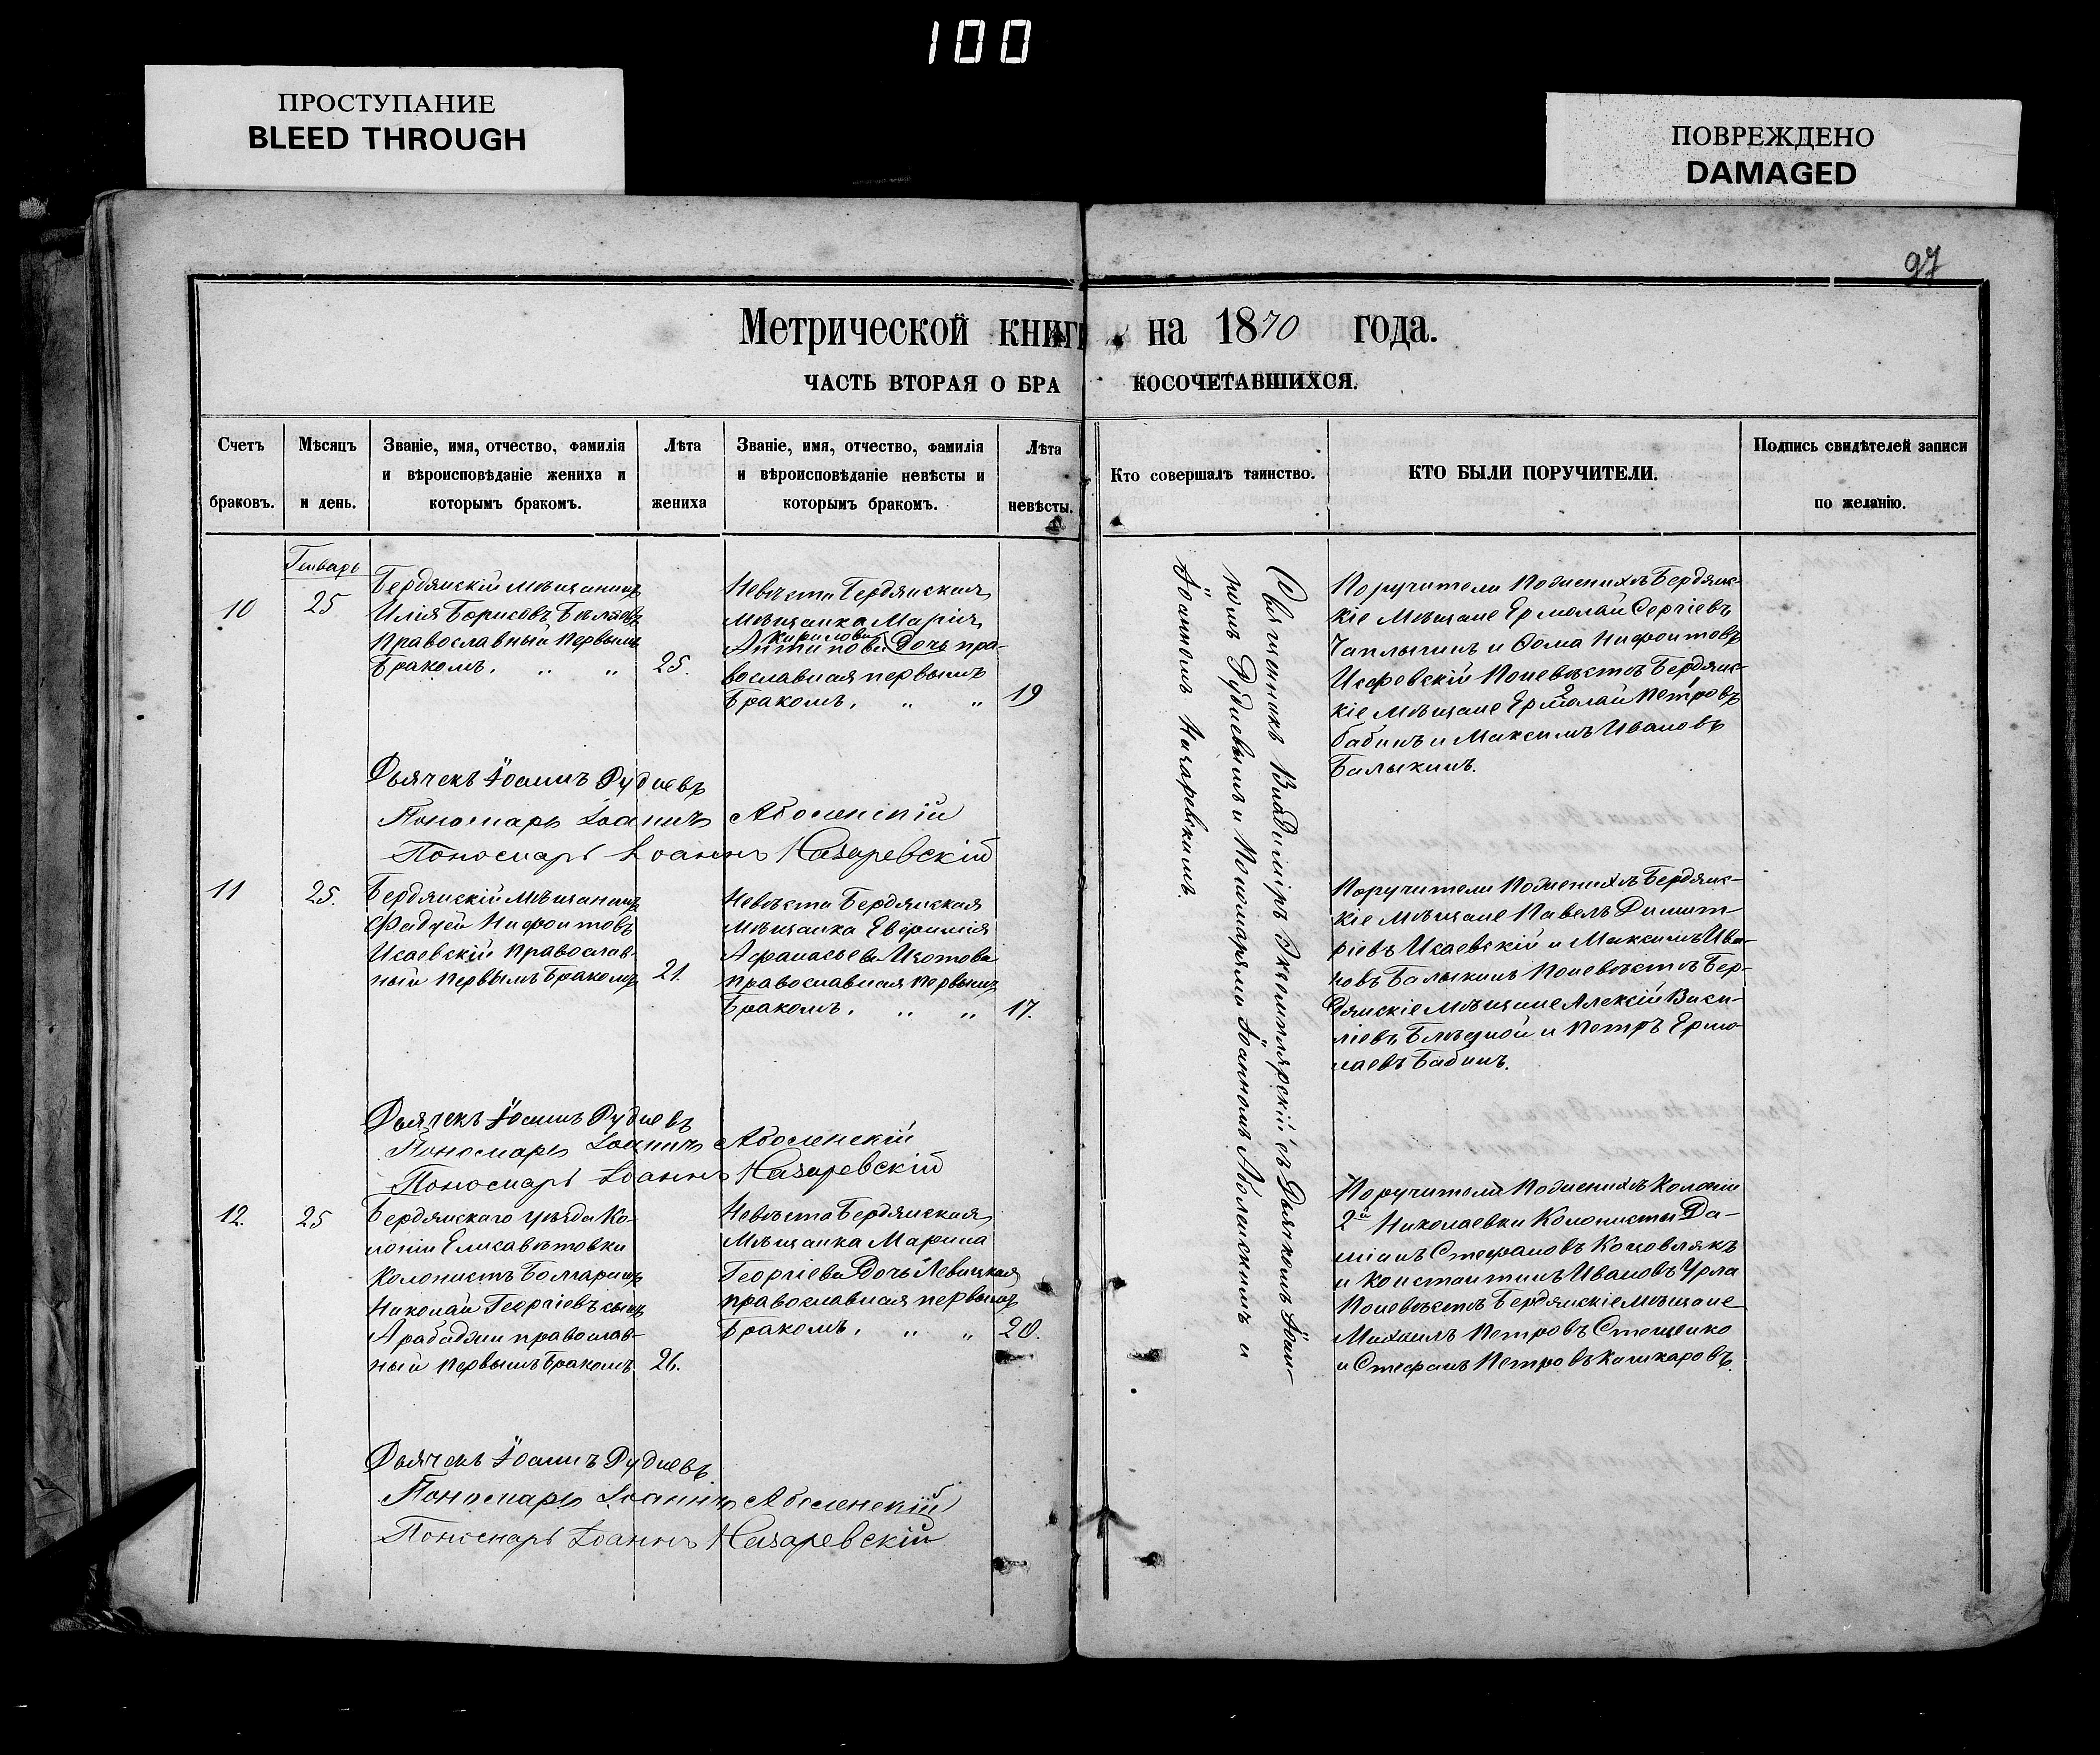 100
ПРОСТУПАНИЕ
BLEED THROUGH
ПОВРЕЖДЕНО
DAMAGED
97
Метрической книги на 1870 года.
ЧАСТЬ ВТОРАЯ О БРАКОСОЧЕТАВШИХСЯ.
Счетъ браковъ.
Мѣсяцъ и день.
Званіе, имя, отчество, фамилія
и вѣроисповѣданіе жениха и
которымъ бракомъ.
Лѣта жениха
Званіе, имя, отчество, фамилія
и вѣроисповѣданіе невѣсты и
которымъ бракомъ.
Лѣта невѣсты.
Кто совершалъ таинство.
КТО БЫЛИ ПОРУЧИТЕЛИ.
Подпись свидѣтелей записи
по желанію.
Генварь
10
25
Бердянскій мѣщанинъ
Илія Борисовъ Бѣляевъ
Православный первымъ
бракомъ. „ „
25.
Невѣста Бердянская
мѣщанка Марія
Кирилова
Антипова Дочь пра-
вославная первымъ
бракомъ. „ „
19
Поручители Поженихѣ Бердянс-
кіе мѣщане Ермолай Сергіевъ
Чаплыгинъ и Ѳома Нифонтовъ
Поневѣстѣ Бердянс-
кіе мѣщане Ермолай Петровъ
Бабинъ и Максимъ Ивановъ
Балыкинъ.
Дьячекъ Іоаннъ Рудневъ
Пономарь Іоаннъ Аболенскій
Пономарь Іоаннъ Назаревскій
11
25.
Бердянскій мѣщанинъ
Фаддей Нифонтовъ
Исаевскій Православ-
ный первымъ бракомъ
21.
Невѣста Бердянская
мѣщанка Евфимія
Афанасьева Изотова
православная первымъ
бракомъ. „ „
17.
Поручители Поженихѣ Бердянс-
кіе мѣщане Павелъ Димит-
ріевъ Исаевскій и Максимъ Ива-
новъ Балыкинъ Поневѣстѣ Бер-
дянскіе мѣщане Алексій Васи-
ліевъ и Петръ Ермо-
лаевъ Бабинъ.
Дьячекъ Іоаннъ Рудневъ
Пономарь Іоаннъ Аболенскій
Пономарь Іоаннъ Назаревскій
12.
25
Бердянскаго уѣзда Ко-
лоніи Елисаветовки
Колонистъ Болгаринъ
Николай Георгіевъ сынъ
Арабаджи православ-
ный первымъ бракомъ.
26.
Невѣста Бердянская
мѣщанка Марина
Георгіева Дочь Левицкая
православная первымъ
бракомъ. „ „
20.
Поручители Поженихѣ Колоніи
2й Николаевки Колонисты Да-
міанъ Стефановъ
и Константинъ Ивановъ Урла
Поневѣстѣ Бердянскіе мѣщане
Михаилъ Петровъ Стеценко
и Стефанъ Петровъ Кашкаровъ.
Дьячекъ Іоаннъ Рудневъ
Пономарь Іоаннъ Аболенскій
Пономарь Іоаннъ Назаревскій
Священникъ Владиміръ Экземплярскій съ Дьячкомъ Іоан-
номъ Рудневымъ и Пономарями Іоанномъ Аболенскимъ и
Іоанномъ Назаревскимъ.